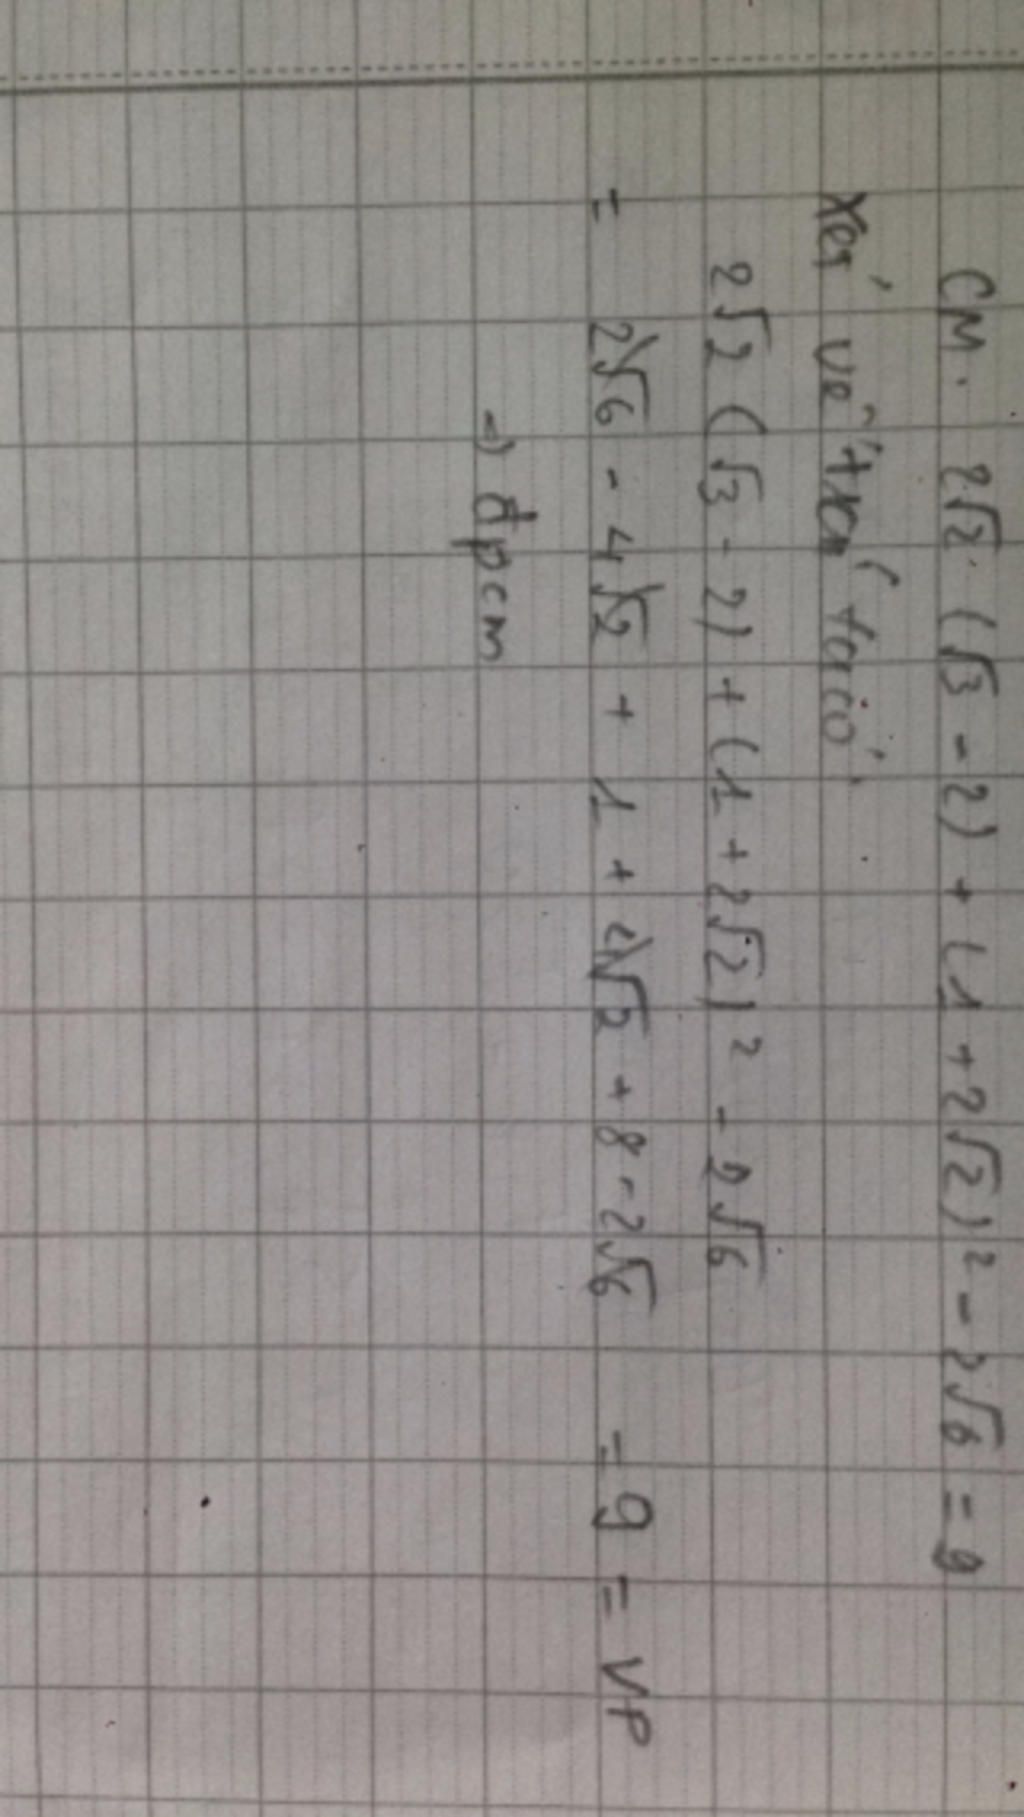 CM. 2√2. (√3 - 2) + (1 + 2√2)² - 2√6 = 9
Xét vế trái ta có:
2√2 (√3 - 2) + (1 + 2√2)² - 2√6
= 2√6 - 4√2 + 1 + 4√2 + 8 - 2√6 = 9 = VP
→ đpcm